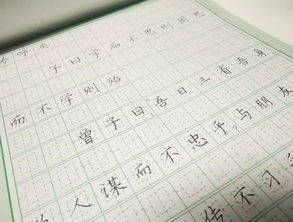 为师矣
子曰学而不思则罔思
而不学则殆
曾子曰:吾日三省吾身
为人谋而不忠乎,与朋友
传不习